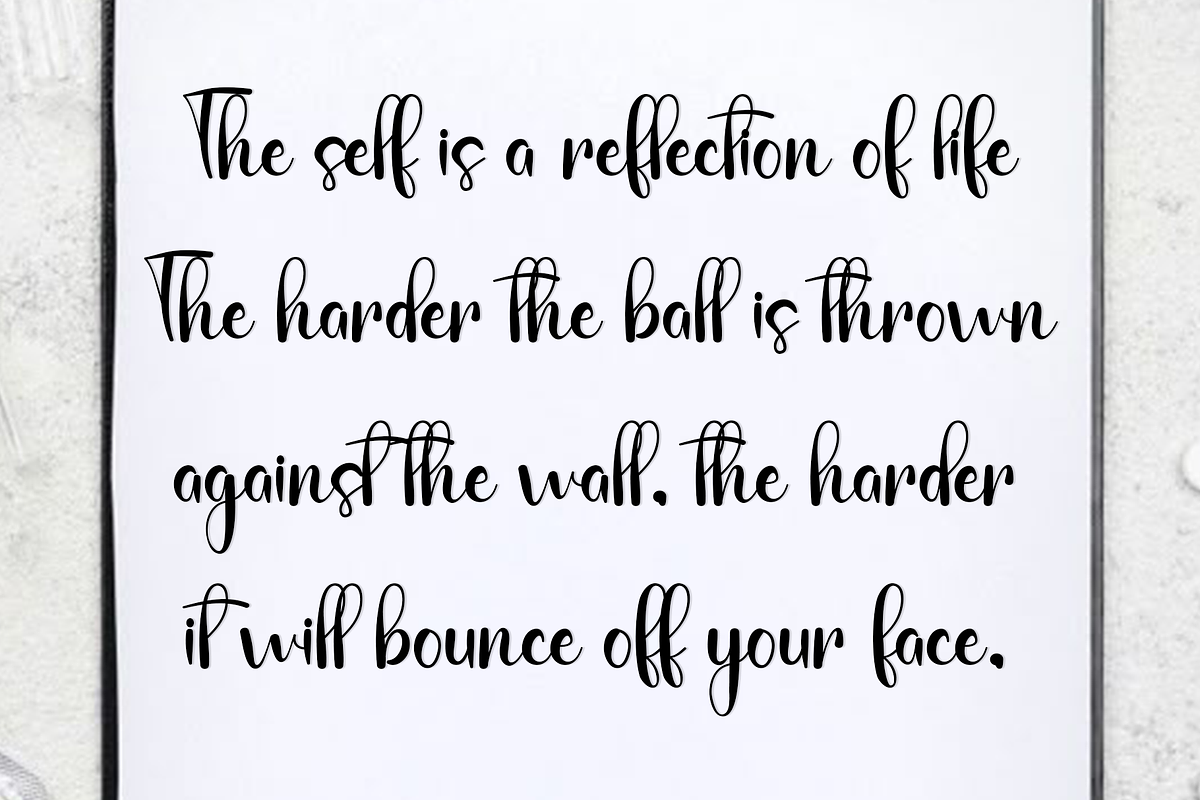 The self is a reflection of life
The harder the ball is thrown
against the wall, the harder
it will bounce off your face.